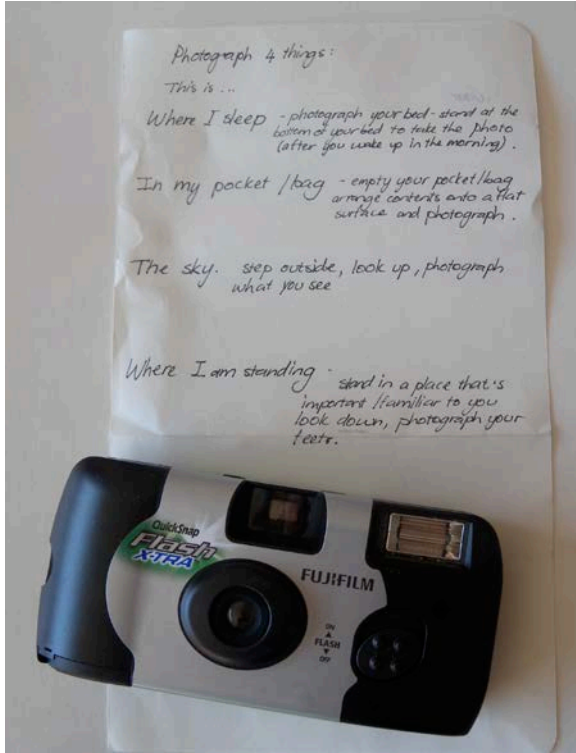 Photograph 4 things:
This is ...
Where I sleep - photograph your bed - stand at the
bottom of your bed to take the photo
(after you wake up in the morning).
In my pocket / bag - empty your pocket/bag
arrange contents onto a flat
surface and photograph.
The sky. step outside, look up, photograph
what you see
Where I am standing -
stand in a place that's
important / familiar to you
look down, photograph your
feet.
QuickSnap
Flash
X-TRA
FUJIFILM
ON
FLASH
OFF